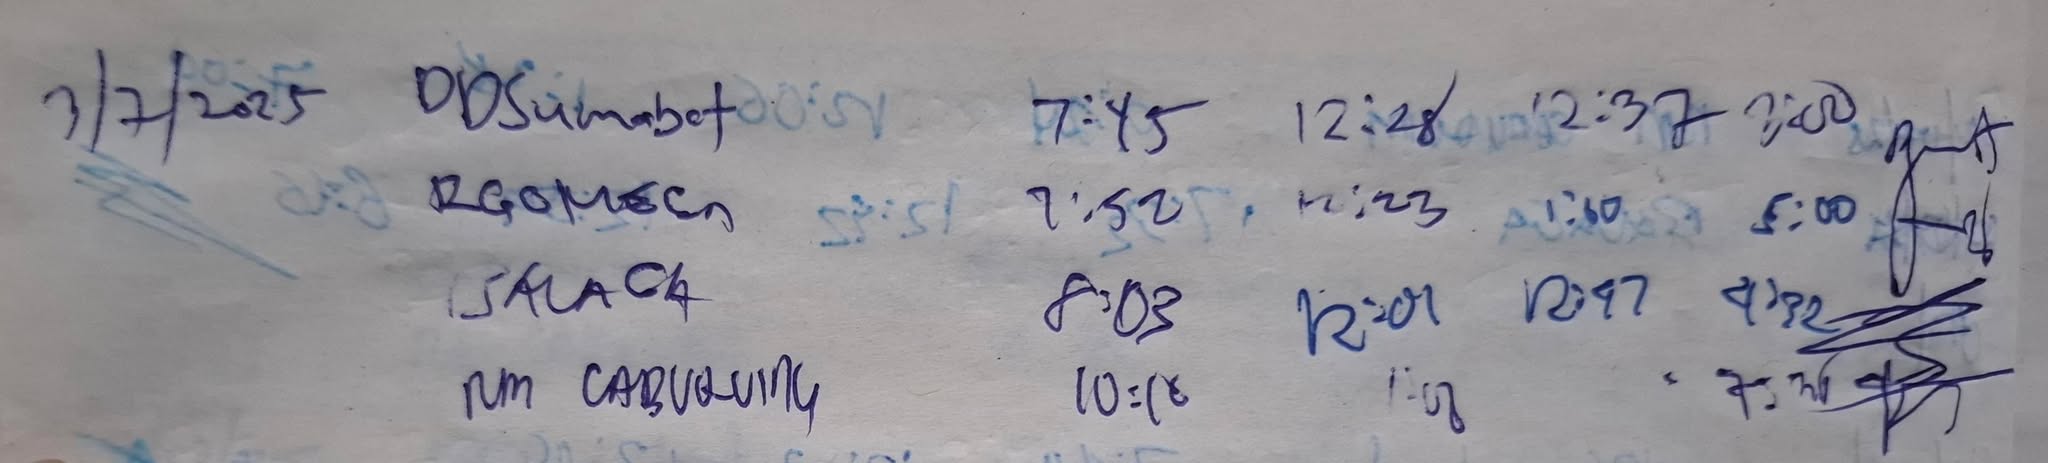 3/7/2025 DDSumabat 7:45 12:28 12:37 3:00
RGOMEZ 7:52 12:23 1:10 5:00
SALAGA 8:03 12:01 12:47 4:32
NM CABUQUING 10:18 1:08